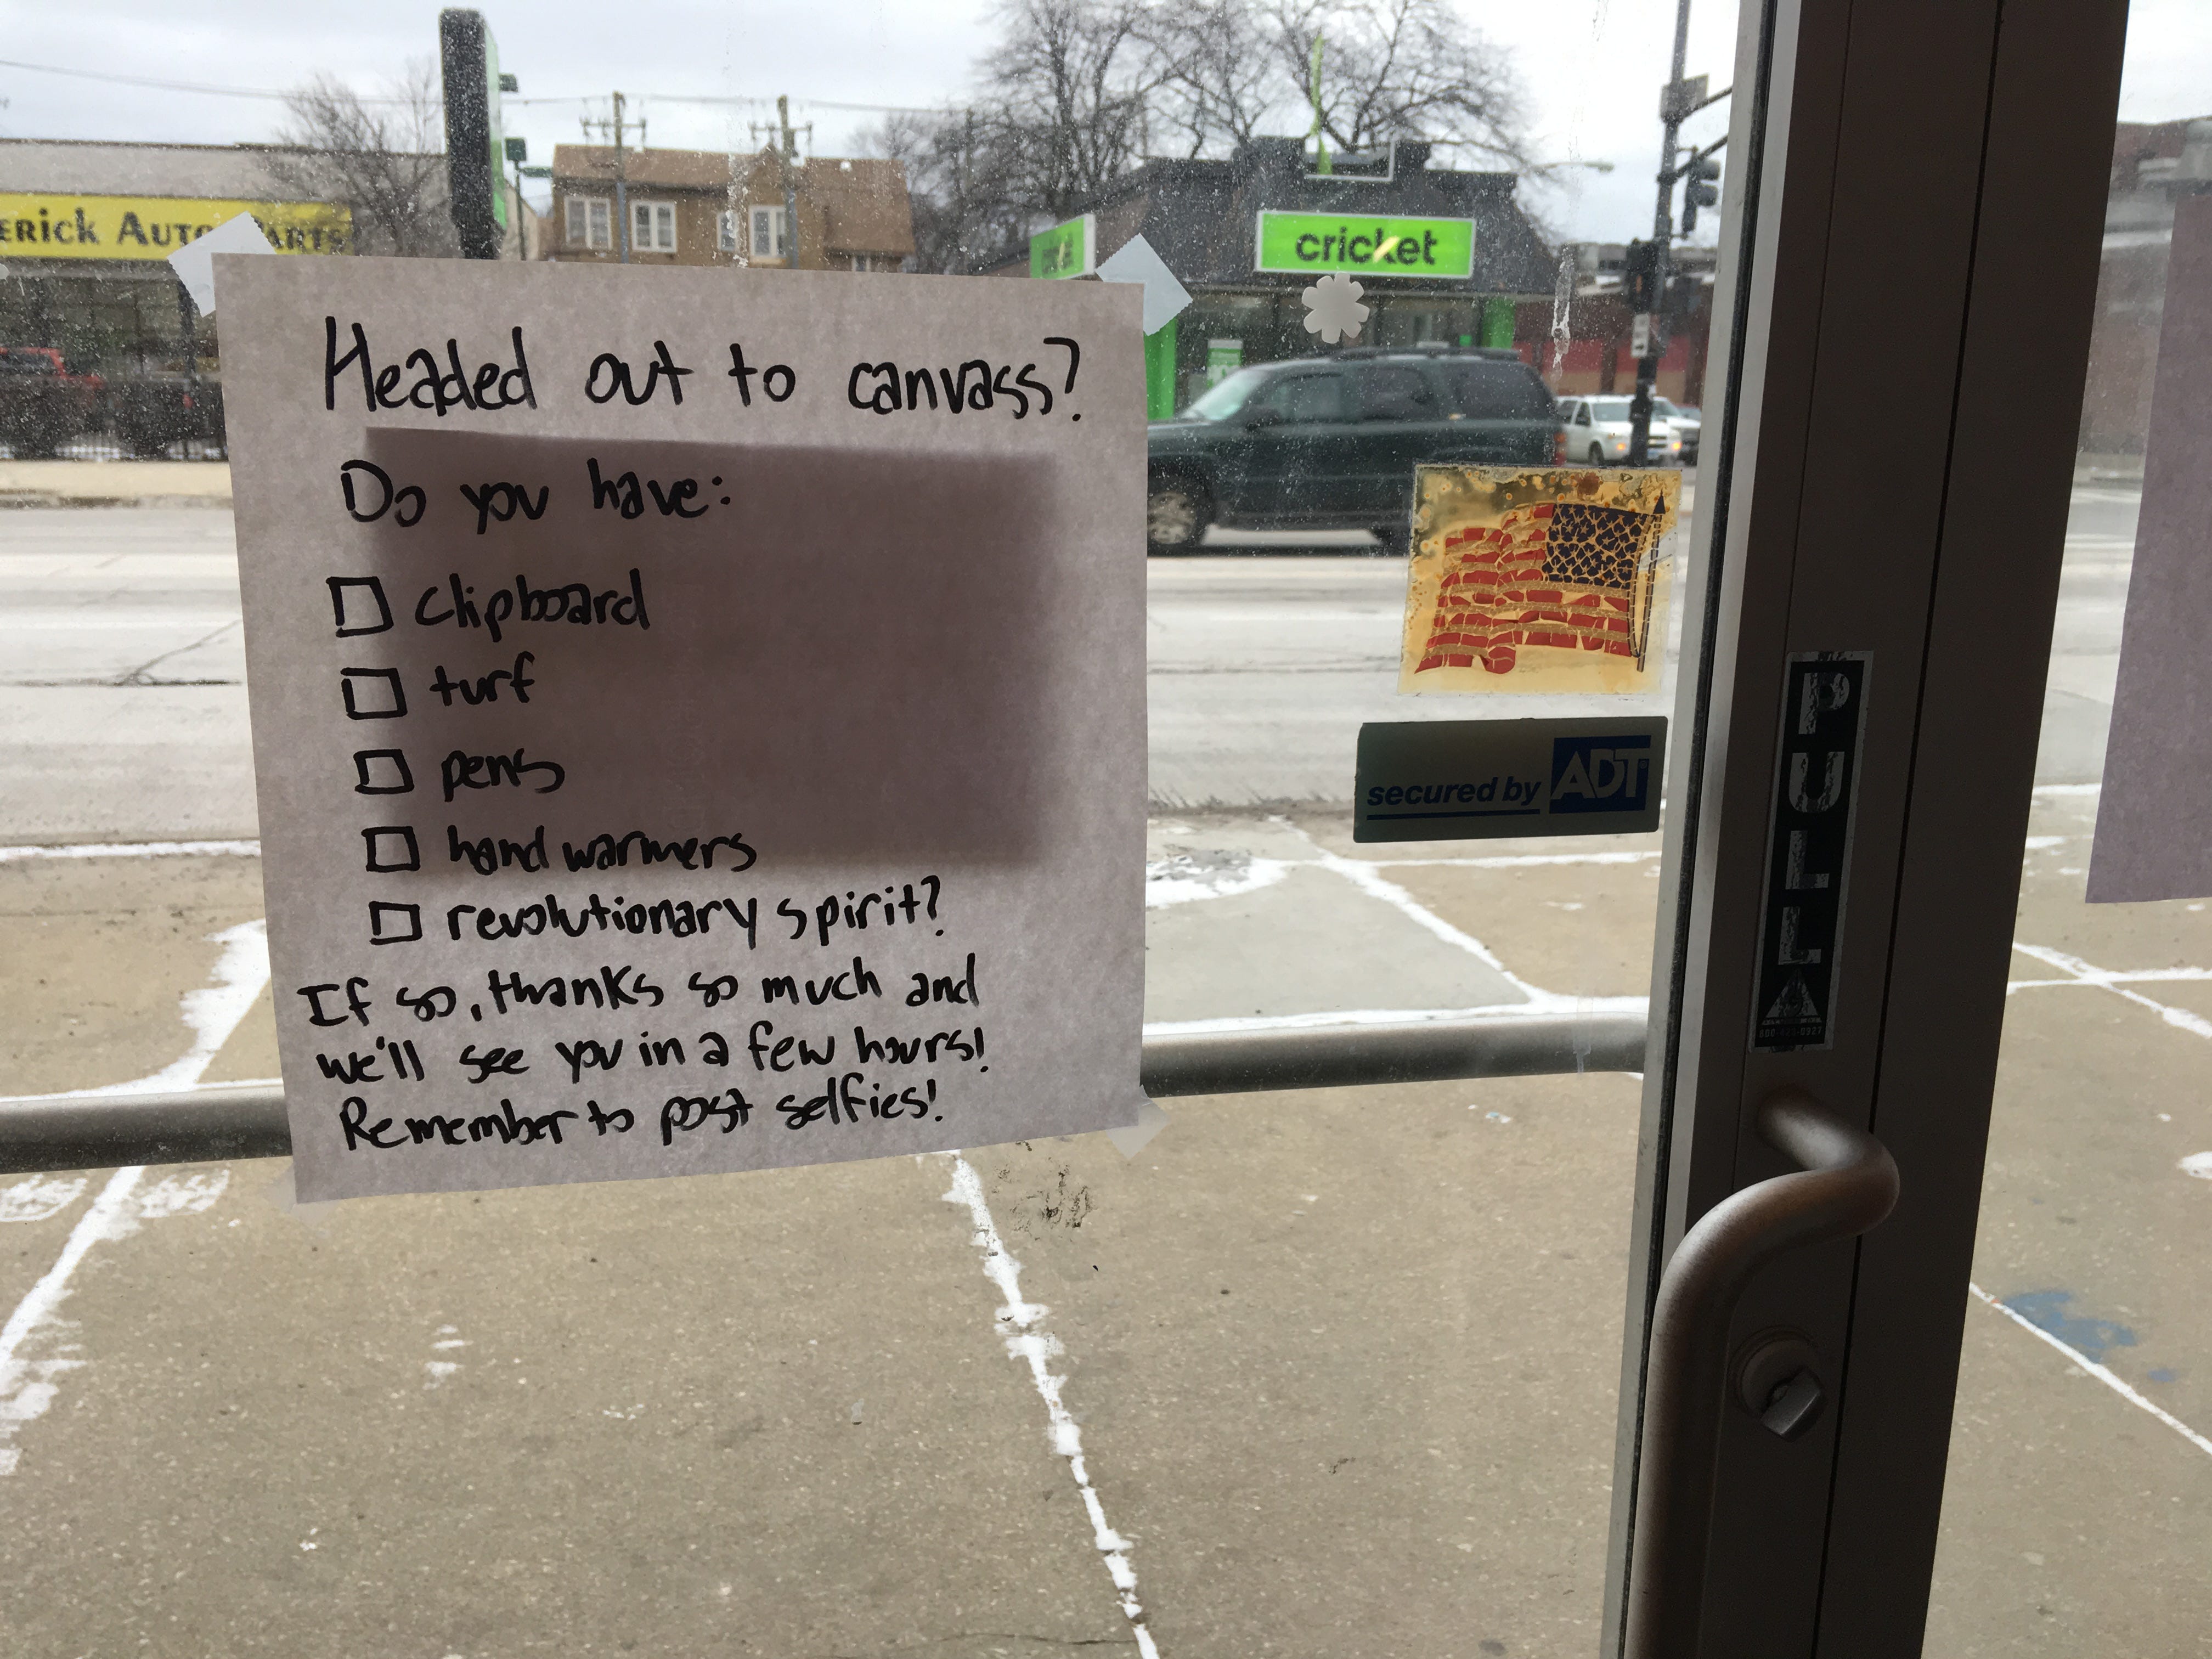 erick Auto Parts
cricket
Headed out to canvass?
Do you have:
clipboard
turf
pens
hand warmers
revolutionary spirit?
If so, thanks so much and
we'll see you in a few hours!
Remember to post selfies!
secured by ADT
PULL